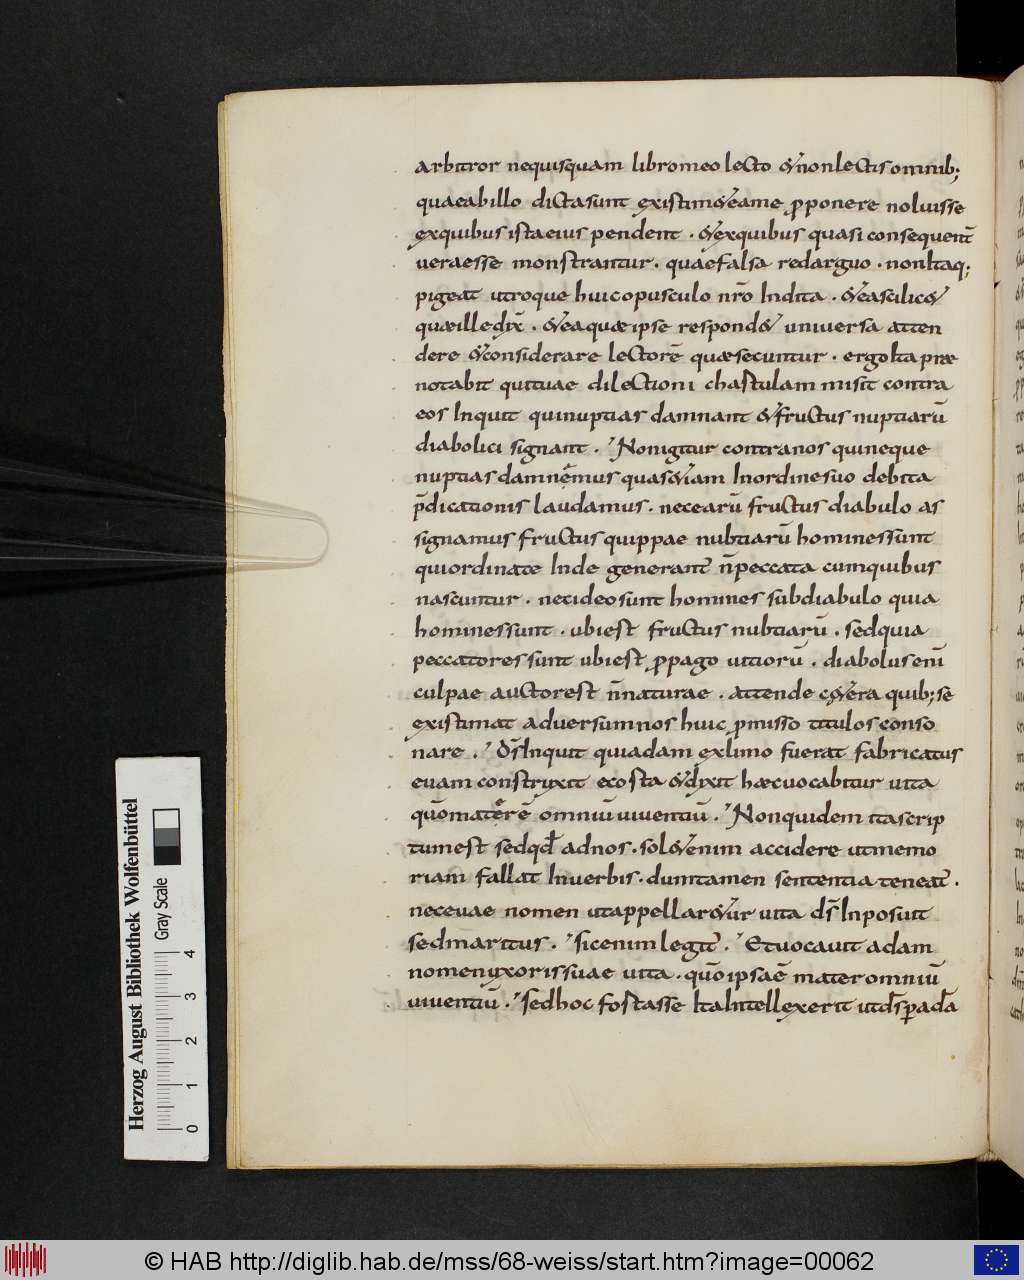 arbitror nequisquam libromeo lecto &nonlectis omnib;
quaeabillo dictasunt existim&eame p̱ponere noluisse
exquibus istaeius pendent · &exquibus quasi consequent̄
ueraesse monstrantur · quaefalsa redarguo · nonItaq;
pigeat utroque huicopusculo nr̄o Indita · &eascilic&
quæilledix̄ · &eaquæipse respond& uniuersa atten
dere &considerare lectorē quæsecuntur · ergoIta præ
notabit quituae dilectioni chastulam misit contra
eos Inquit quinuptias damnant &fructus nuptiarū
diabolici signant · Nonigitur contranos quineque
nuptias damnemus quas&iam Inordinesuo debita
p̄dicationis laudamus · necearū fructus diabulo as
signamus fructus quippae nubtiarū hominessunt
quiordinate Inde generant̄ n̄peccata cumquibus
nascuntur · necideosunt homines subdiabulo quia
hominessunt · ubiest fructus nubtiarū · sedquia
peccatoressunt ubiest p̱pago uitiorū · diabolusenī
culpae auctorest n̄naturae · attende c&era quib;se
existimat aduersumnos huic p̱misso titulos conso
nare · Ds̄Inquit quiadam exlimo fuerat fabricatus
euam construxit ecosta &dixit hæcuocabitur uita
quōmaterē omniū uiuentiū · Nonquidem itascrip
tumest sedqd̄ adnos · sol&enim accidere utmemo
riam fallat Inuerbis · dumtamen sententia teneat̄ ·
neceuae nomen utappellar&ur uita ds̄ Inposuit
sedmaritus · sicenim legit̄ · Etuocauit adam
nomenuxorissuae uita · quōipsaē mateромniū
uiuentiū · sedhoc fostasse ItaIntellexerit utds̄ padā
Herzog August Bibliothek Wolfenbüttel
Gray Scale
0 1 2 3 4
© HAB http://diglib.hab.de/mss/68-weiss/start.htm?image=00062